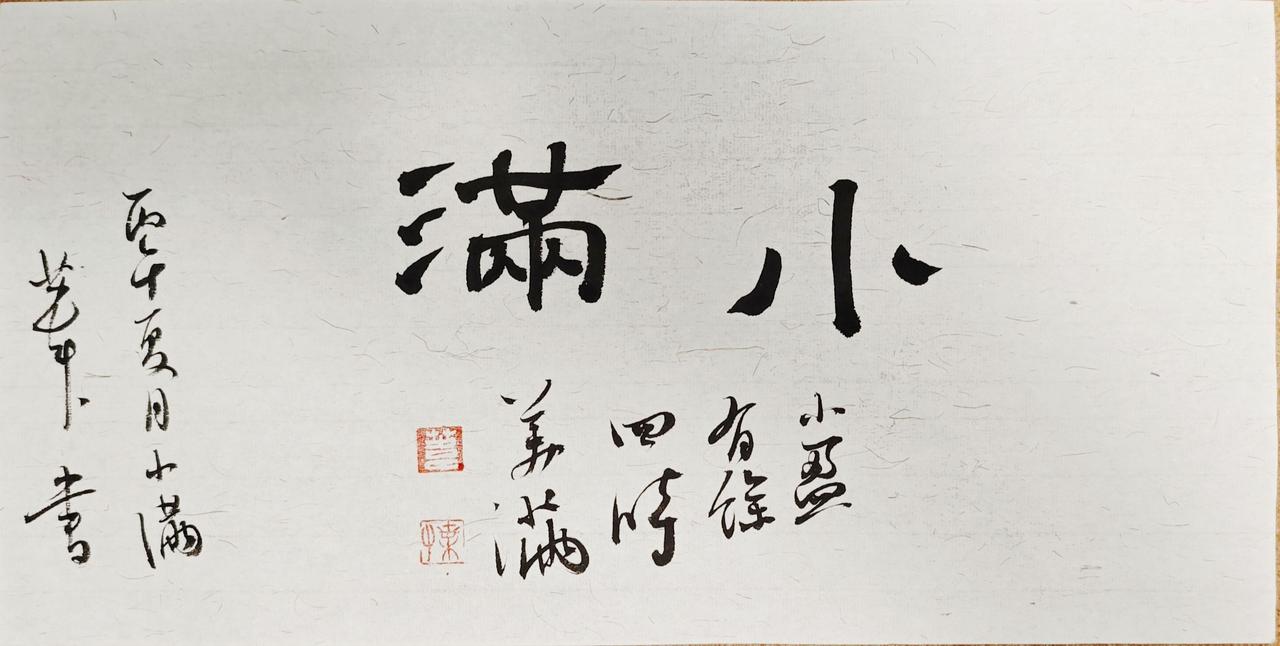 小滿
小盈
有餘
四時
美滿
夏月小滿
書